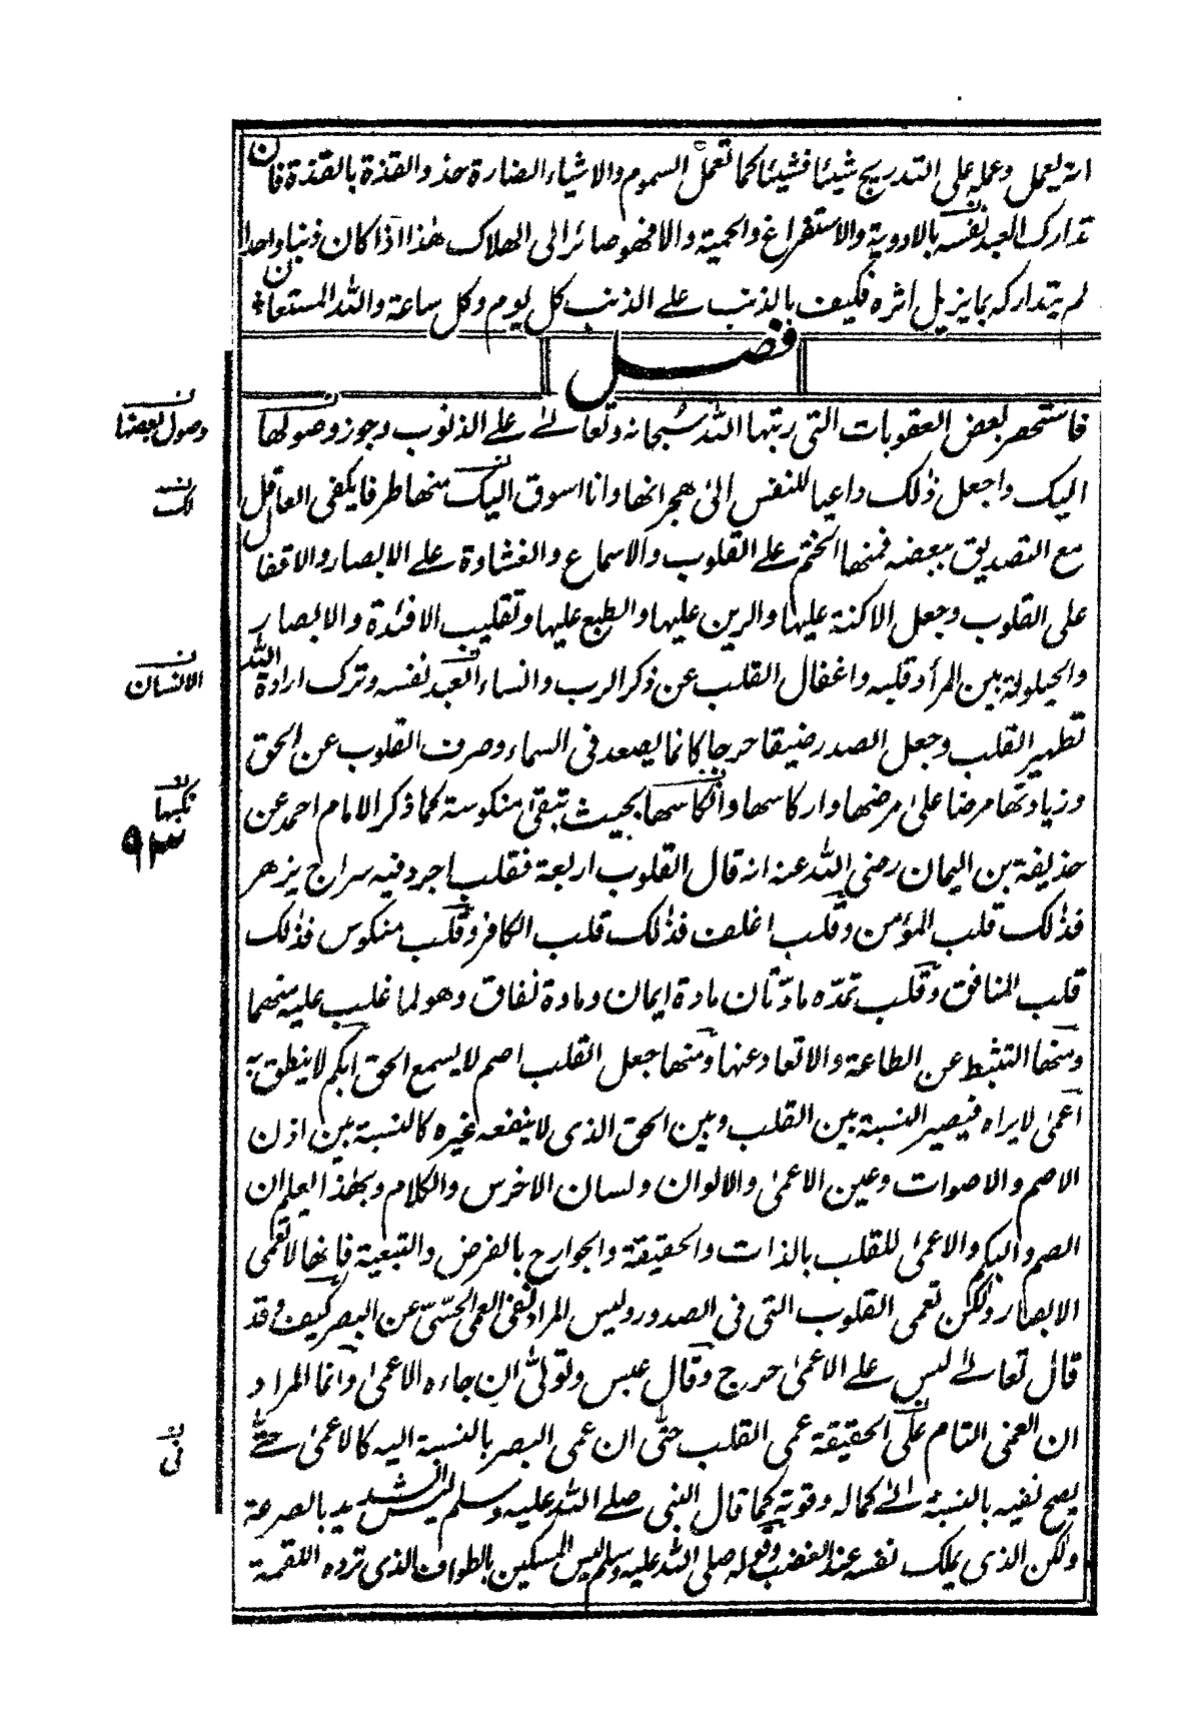 انه يعمل وعمله على التدريج شيئا فشيئا كما تعمل السموم والاشياء الضارة حذو القذة بالقذة فان
تدارك العبد نفسه بالادوية والاستفراغ والحمية والا فهو صائر الى الهلاك هذا اذا كان ذنبا واحدا
لم يتداركه بما يزيل اثره فكيف بالذنب على الذنب كل يوم وكل ساعة والله المستعان
فصل
فاستحضر بعض العقوبات التى رتبها الله سبحانه وتعالى على الذنوب وجوز وصولها
وصول بعضها
اليك واجعل ذلك داعيا للنفس الى هجرانها وانا اسوق اليك منها طرفا يكفى العاقل
لك
مع التصديق ببعضه فمنها الختم على القلوب والاسماع والغشاوة على الابصار والاقفال
على القلوب وجعل الاكنة عليها والرين عليها والطبع عليها وتقليب الافئدة والابصار
والحيلولة بين المرأ وقلبه واغفال القلب عن ذكر الرب وانساء العبد نفسه وترك ارادة الله
الانسان
تطهير القلب وجعل الصدر ضيقا حرجا كانما يصعد فى السماء وصرف القلوب عن الحق
وزيادتها مرضا على مرضها واركاسها وانكاسها بحيث تبقى منكوسة كما ذكر الامام احمد عن
نكبها
٩٣
حذيفة بن اليمان رضى الله عنه انه قال القلوب اربعة فقلب اجرد فيه سراج يزهر
فذلك قلب المؤمن وقلب اغلف فذلك قلب الكافر وقلب منكوس فذلك
قلب المنافق وقلب تمده مادتان مادة ايمان ومادة نفاق وهو لما غلب عليه منهما
ومنها التثبط عن الطاعة والاتعاد عنها ومنها جعل القلب اصم لا يسمع الحق ابكم لا ينطق به
اعمى لا يراه فيصير النسبة بين القلب وبين الحق الذى لا ينفعه غيره كالنسبة بين اذن
الاصم والاصوات وعين الاعمى والالوان ولسان الاخرس والكلام وبهذا يعلم ان
الصم والبكم والاعمى للقلب بالذات والحقيقة والجوارح بالفرض والتبعية فانها لا تعمى
الابصار ولكن تعمى القلوب التى فى الصدور وليس المراد نفى العمى الحسّىّ عن البصر كيف وقد
قال تعالى ليس على الاعمى حرج وقال عبس وتولى ان جاءه الاعمى وانما المراد
ان العمى التام على الحقيقة عمى القلب حتى ان عمى البصر بالنسبة اليه كالاعمى حتى
فى
يصح نفيه بالنسبة الى كماله وقوته كما قال النبى صلى الله عليه وسلم ليس الشديد بالصرعة
ولكن الذى يملك نفسه عند الغضب وقوله صلى الله عليه وسلم ليس المسكين بالطواف الذى ترده اللقمة